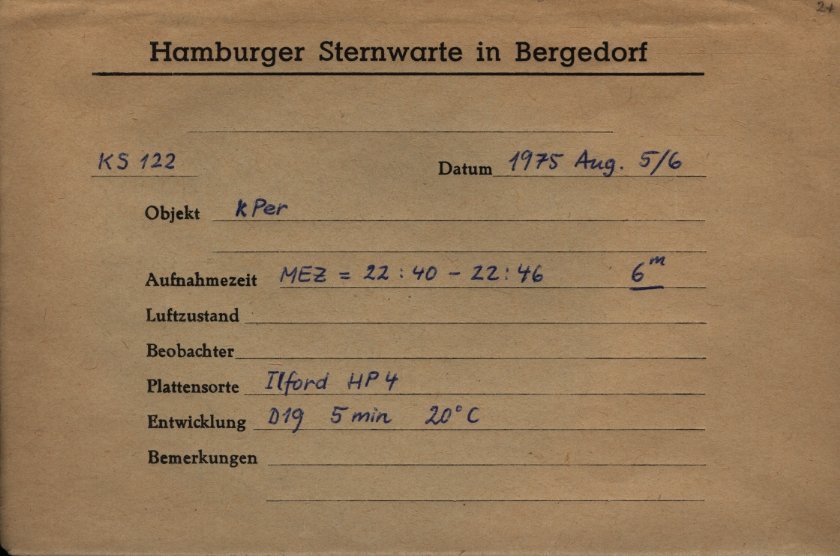 24
Hamburger Sternwarte in Bergedorf
KS 122 Datum 1975 Aug. 5/6
Objekt κ Per
Aufnahmezeit MEZ = 22:40 - 22:46 6ᵐ
Luftzustand
Beobachter
Plattensorte Ilford HP4
Entwicklung D19 5 min 20°C
Bemerkungen